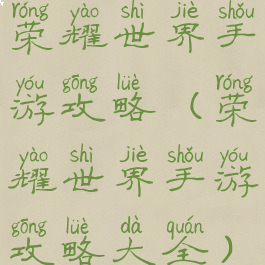 róng yào shì jiè shǒu
荣耀世界手
yóu gōng lüè róng
游攻略（荣
yào shì jiè shǒu yóu
耀世界手游
gōng lüè dà quán
攻略大全）